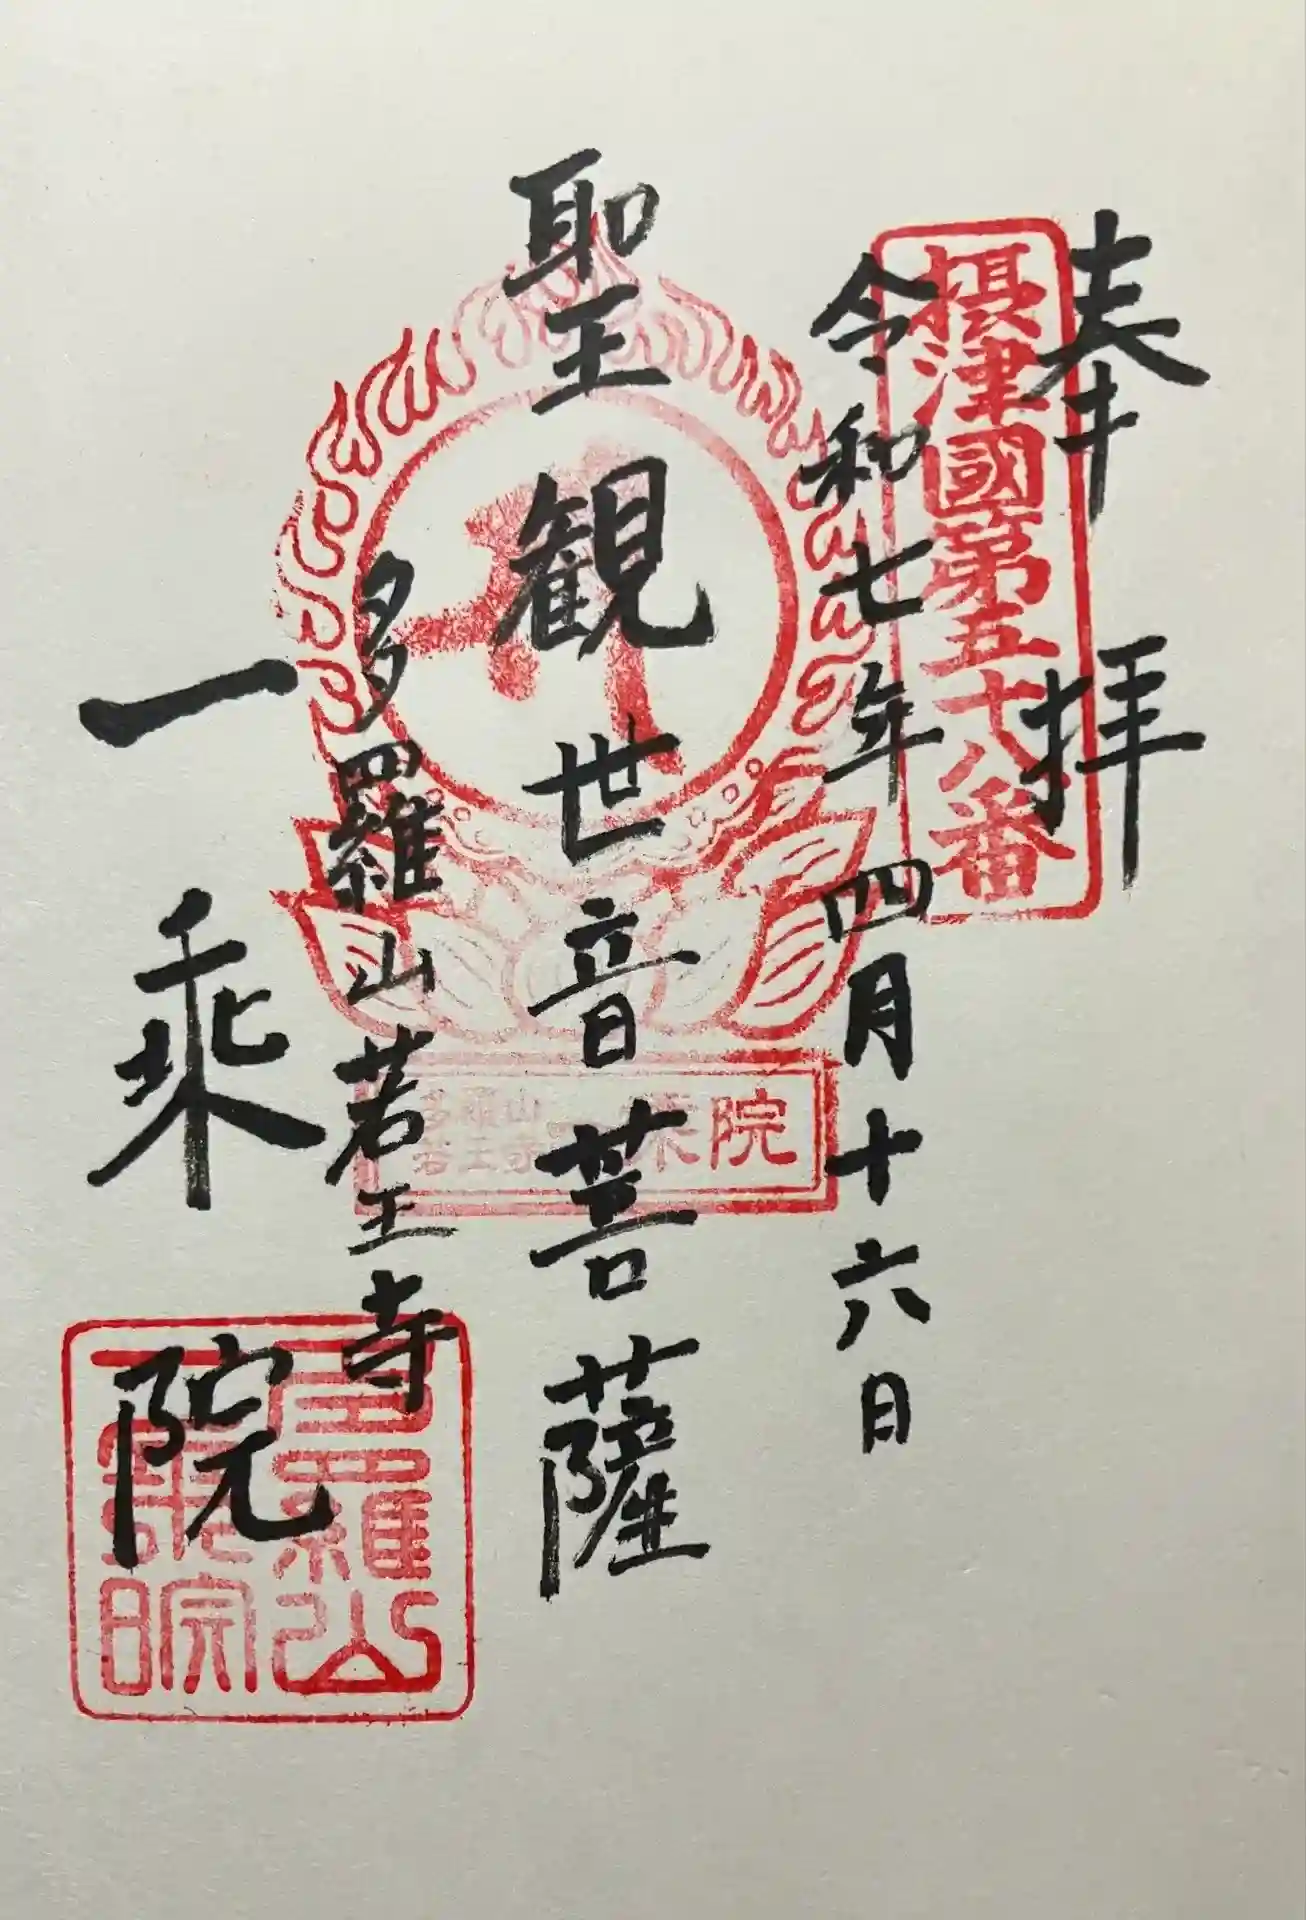 奉拝
摂津國第五十八番
令和七年四月十六日
聖観世音菩薩
多羅山若王寺
一乗院
多羅山
若王寺
一乗院
多羅山
一乗院